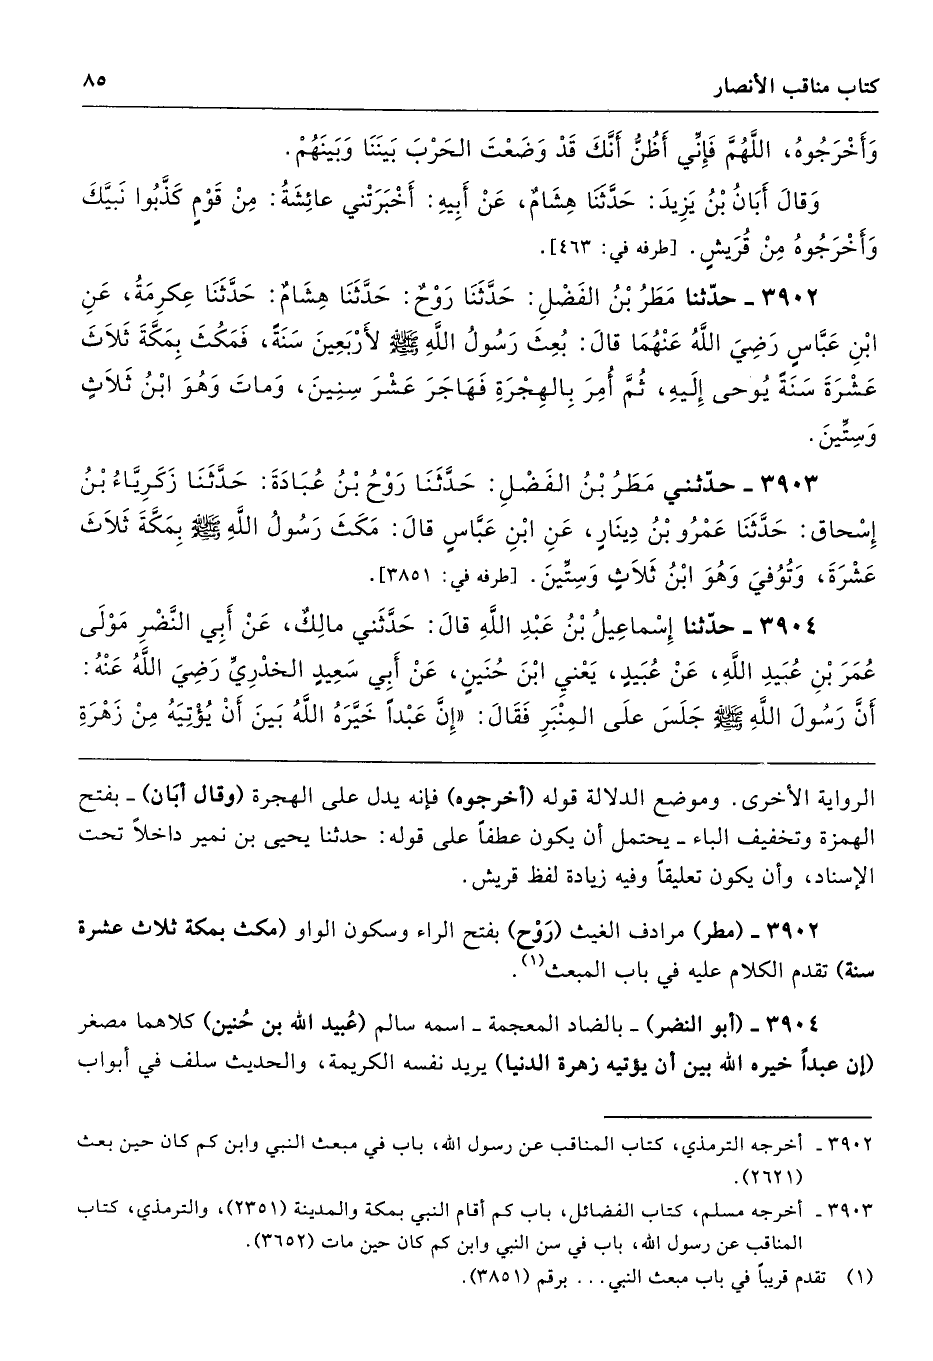 كتاب مناقب الأنصار ٨٥
وَأَخْرَجُوهُ، اللَّهُمَّ فَإِنِّي أَظُنُّ أَنَّكَ قَدْ وَضَعْتَ الحَرْبَ بَيْنَنَا وَبَيْنَهُمْ.
وَقالَ أَبَانُ بْنُ يَزِيدَ: حَدَّثَنَا هِشَامٌ، عَنْ أَبِيهِ: أَخْبَرَتْنِي عائِشَةُ: مِنْ قَوْمٍ كَذَّبُوا نَبِيَّكَ
وَأَخْرَجُوهُ مِنْ قُرَيشٍ. [طرفه في: ٤٦٣].
٣٩٠٢ ـ حدّثنا مَطَرُ بْنُ الفَضْلِ: حَدَّثَنَا رَوْحٌ: حَدَّثَنَا هِشَامٌ: حَدَّثَنَا عِكرِمَةُ، عَنِ
ابْنِ عَبَّاسٍ رَضِيَ اللَّهُ عَنْهُمَا قالَ: بُعِثَ رَسُولُ اللَّهِ ﷺ لأَرْبَعِينَ سَنَةً، فَمَكُثَ بِمَكَّةَ ثَلَاثَ
عَشْرَةَ سَنَةً يُوحى إِلَيهِ، ثُمَّ أُمِرَ بِالهِجْرَةِ فَهَاجَرَ عَشْرَ سِنِينَ، وَماتَ وَهُوَ ابْنُ ثَلَاثٍ
وَسِتِّينَ.
٣٩٠٣ ـ حدّثني مَطَرُ بْنُ الفَضْلِ: حَدَّثَنَا رَوْحُ بْنُ عُبَادَةَ: حَدَّثَنَا زَكَرِيَّاءُ بْنُ
إِسْحاق: حَدَّثَنَا عَمْرُو بْنُ دِينَارٍ، عَنِ ابْنِ عَبَّاسٍ قالَ: مَكَثَ رَسُولُ اللَّهِ ﷺ بِمَكَّةَ ثَلَاثَ
عَشْرَةَ، وَتُوُفِّيَ وَهُوَ ابْنُ ثَلَاثٍ وَسِتِّينَ. [طرفه في: ٣٨٥١].
٣٩٠٤ ـ حدّثنا إِسْماعِيلُ بْنُ عَبْدِ اللَّهِ قالَ: حَدَّثَنِي مالِكٌ، عَنْ أَبِي النَّضْرِ مَوْلَى
عُمَرَ بْنِ عُبَيدِ اللَّهِ، عَنْ عُبَيدٍ، يَعْنِي ابْنَ حُنَينٍ، عَنْ أَبِي سَعِيدٍ الخدْرِيِّ رَضِيَ اللَّهُ عَنْهُ:
أَنَّ رَسُولَ اللَّهِ ﷺ جَلَسَ عَلَى المِنْبَرِ فَقَالَ: «إِنَّ عَبْداً خَيَّرَهُ اللَّهُ بَينَ أَنْ يُؤْتِيَهُ مِنْ زَهْرَةِ
الرواية الأخرى. وموضع الدلالة قوله (أخرجوه) فإنه يدل على الهجرة (وقال أبَان) ـ بفتح
الهمزة وتخفيف الباء ـ يحتمل أن يكون عطفاً على قوله: حدثنا يحيى بن نمير داخلاً تحت
الإسناد، وأن يكون تعليقاً وفيه زيادة لفظ قريش.
٣٩٠٢ ـ (مطر) مرادف الغيث (رَوْح) بفتح الراء وسكون الواو (مكث بمكة ثلاث عشرة
سنة) تقدم الكلام عليه في باب المبعث(١).
٣٩٠٤ ـ (أبو النضر) ـ بالضاد المعجمة ـ اسمه سالم (عُبيد الله بن حُنين) كلاهما مصغر
(إن عبداً خيره الله بين أن يؤتيه زهرة الدنيا) يريد نفسه الكريمة، والحديث سلف في أبواب
٣٩٠٢ ـ أخرجه الترمذي، كتاب المناقب عن رسول الله، باب في مبعث النبي وابن كم كان حين بعث
(٢٦٢١).
٣٩٠٣ ـ أخرجه مسلم، كتاب الفضائل، باب كم أقام النبي بمكة والمدينة (٢٣٥١)، والترمذي، كتاب
المناقب عن رسول الله، باب في سن النبي وابن كم كان حين مات (٣٦٥٢).
(١) تقدم قريباً في باب مبعث النبي... برقم (٣٨٥١).